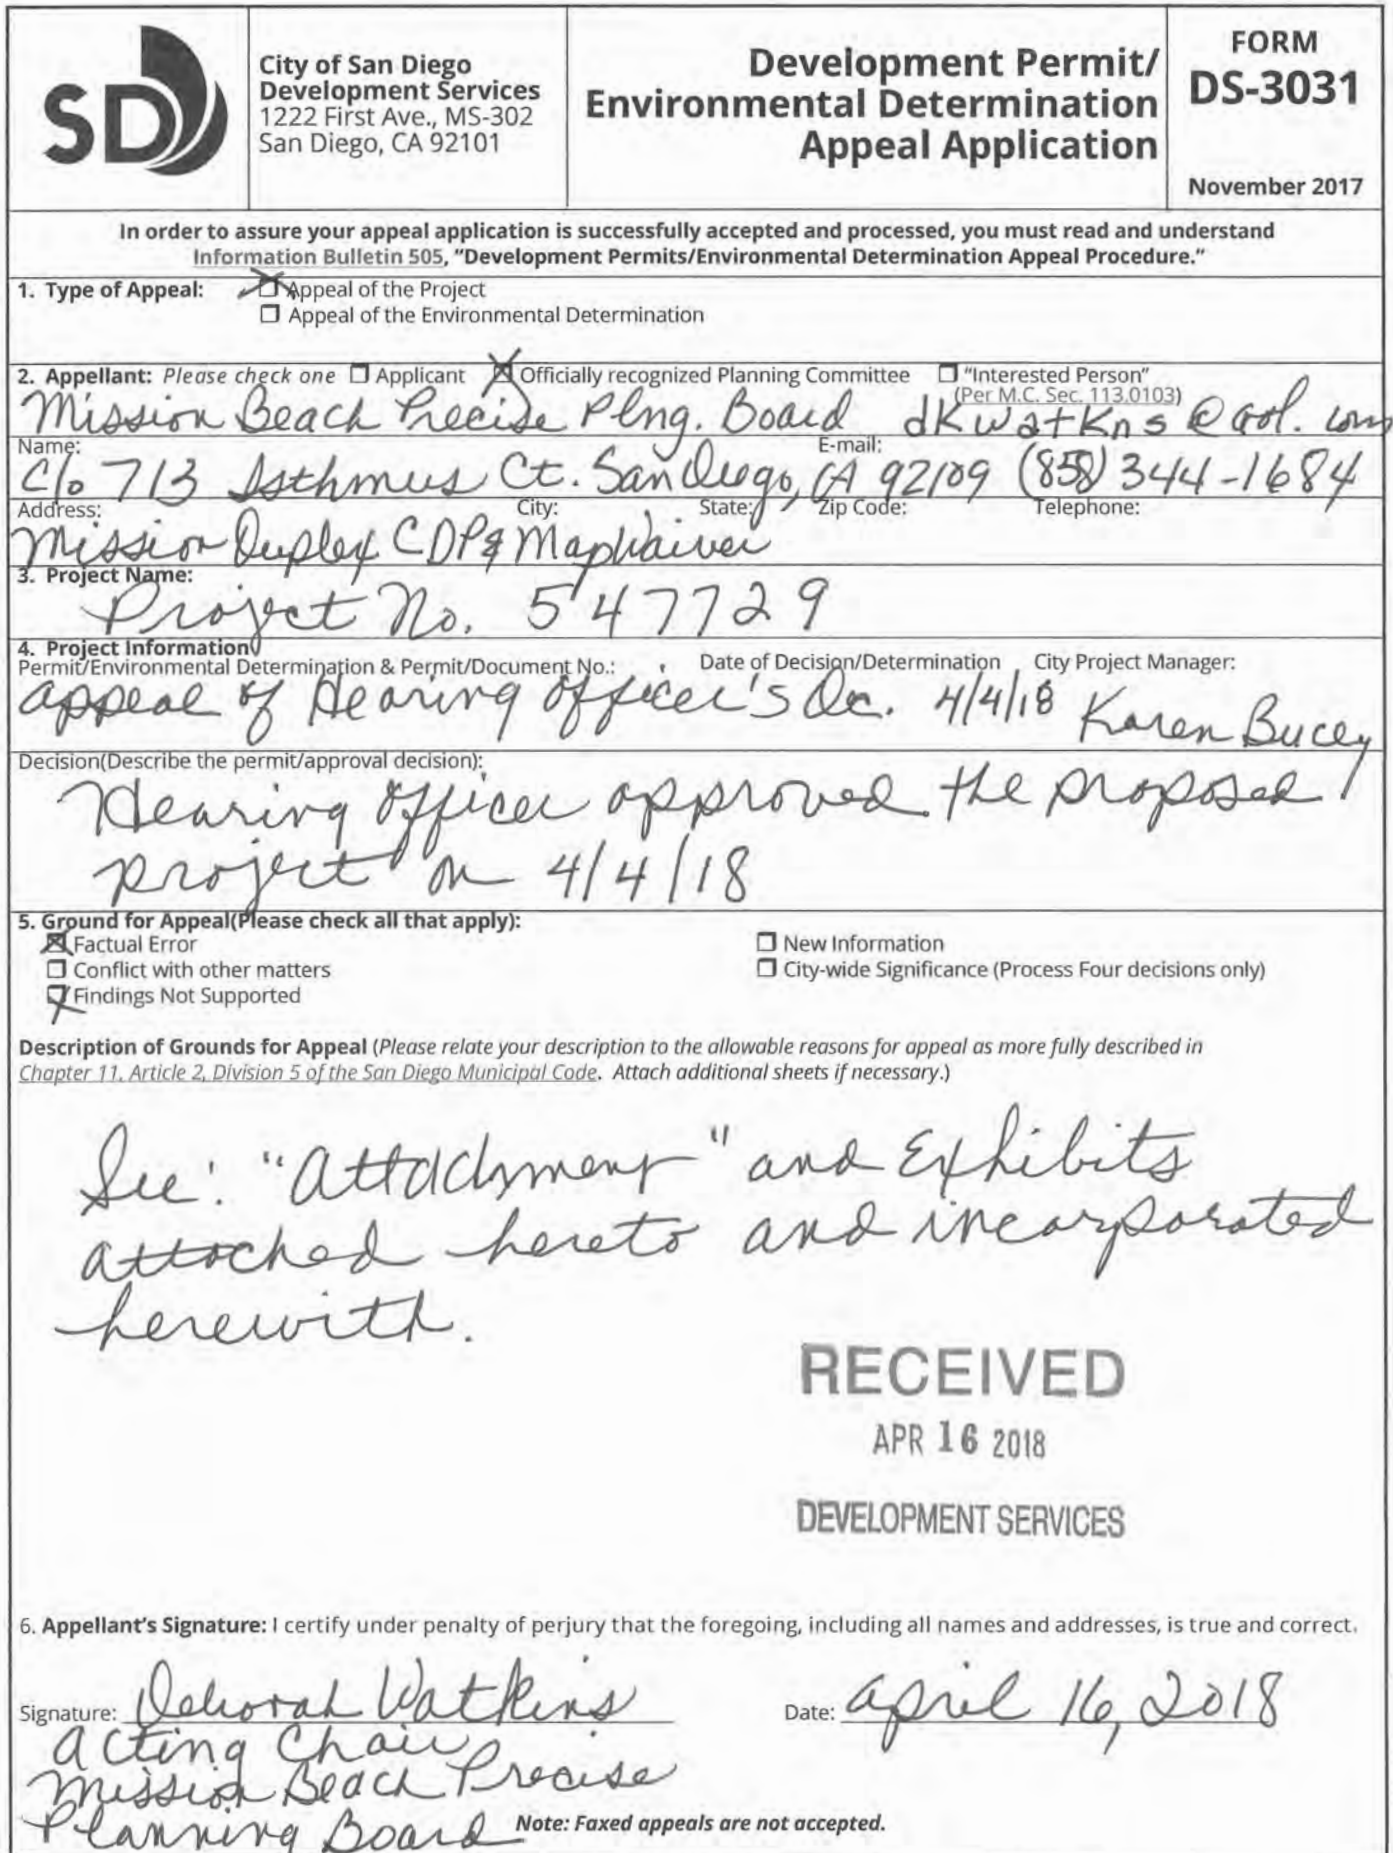 SD
City of San Diego
Development Services
1222 First Ave., MS-302
San Diego, CA 92101
Development Permit/
Environmental Determination
Appeal Application
FORM
DS-3031
November 2017
In order to assure your appeal application is successfully accepted and processed, you must read and understand
Information Bulletin 505, "Development Permits/Environmental Determination Appeal Procedure."
1. Type of Appeal: Appeal of the Project
Appeal of the Environmental Determination
2. Appellant: Please check one Applicant Officially recognized Planning Committee "Interested Person"
(Per M.C. Sec. 113.0103)
Mission Beach Precise Plng. Board dkwatkns@aol.com
Name: E-mail:
C/o 713 Isthmus Ct. San Diego, CA 92109 (858) 344-1684
Address: City: State: Zip Code: Telephone:
Mission Duplex CDP & Map Waiver
3. Project Name:
Project No. 547729
4. Project Information
Permit/Environmental Determination & Permit/Document No.: Date of Decision/Determination City Project Manager:
appeal of Hearing Officer's Dc. 4/4/18 Karen Bucey
Decision(Describe the permit/approval decision):
Hearing Officer approved the proposed
project on 4/4/18
5. Ground for Appeal(Please check all that apply):
Factual Error New Information
Conflict with other matters City-wide Significance (Process Four decisions only)
Findings Not Supported
Description of Grounds for Appeal (Please relate your description to the allowable reasons for appeal as more fully described in
Chapter 11, Article 2, Division 5 of the San Diego Municipal Code. Attach additional sheets if necessary.)
See: "Attachment" and Exhibits
attached hereto and incorporated
herewith.
RECEIVED
APR 16 2018
DEVELOPMENT SERVICES
6. Appellant's Signature: I certify under penalty of perjury that the foregoing, including all names and addresses, is true and correct.
Signature: Deborah Watkins Date: April 16, 2018
Acting Chair
Mission Beach Precise
Planning Board
Note: Faxed appeals are not accepted.